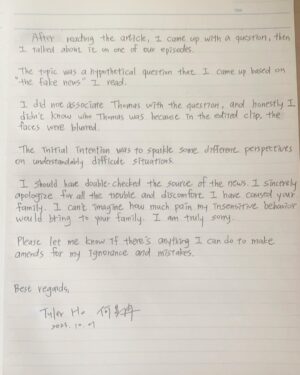 After reading the article, I came up with a question, then
I talked about it in one of our episodes.
The topic was a hypothetical question that I came up based on
"the fake news" I read.
I did not associate Thomas with the question, and honestly I
didn't know who Thomas was because in the edited clip, the
faces were blurred.
The initial intention was to sparkle some different perspectives
on understandably difficult situations.
I should have double-checked the source of the news. I sincerely
apologize for all the trouble and discomfort I have caused your
family. I can't imagine how much pain my insensitive behavior
would bring to your family. I am truly sorry.
Please let me know if there's anything I can do to make
amends for my ignorance and mistakes.
Best regards,
Tyler Ho 何